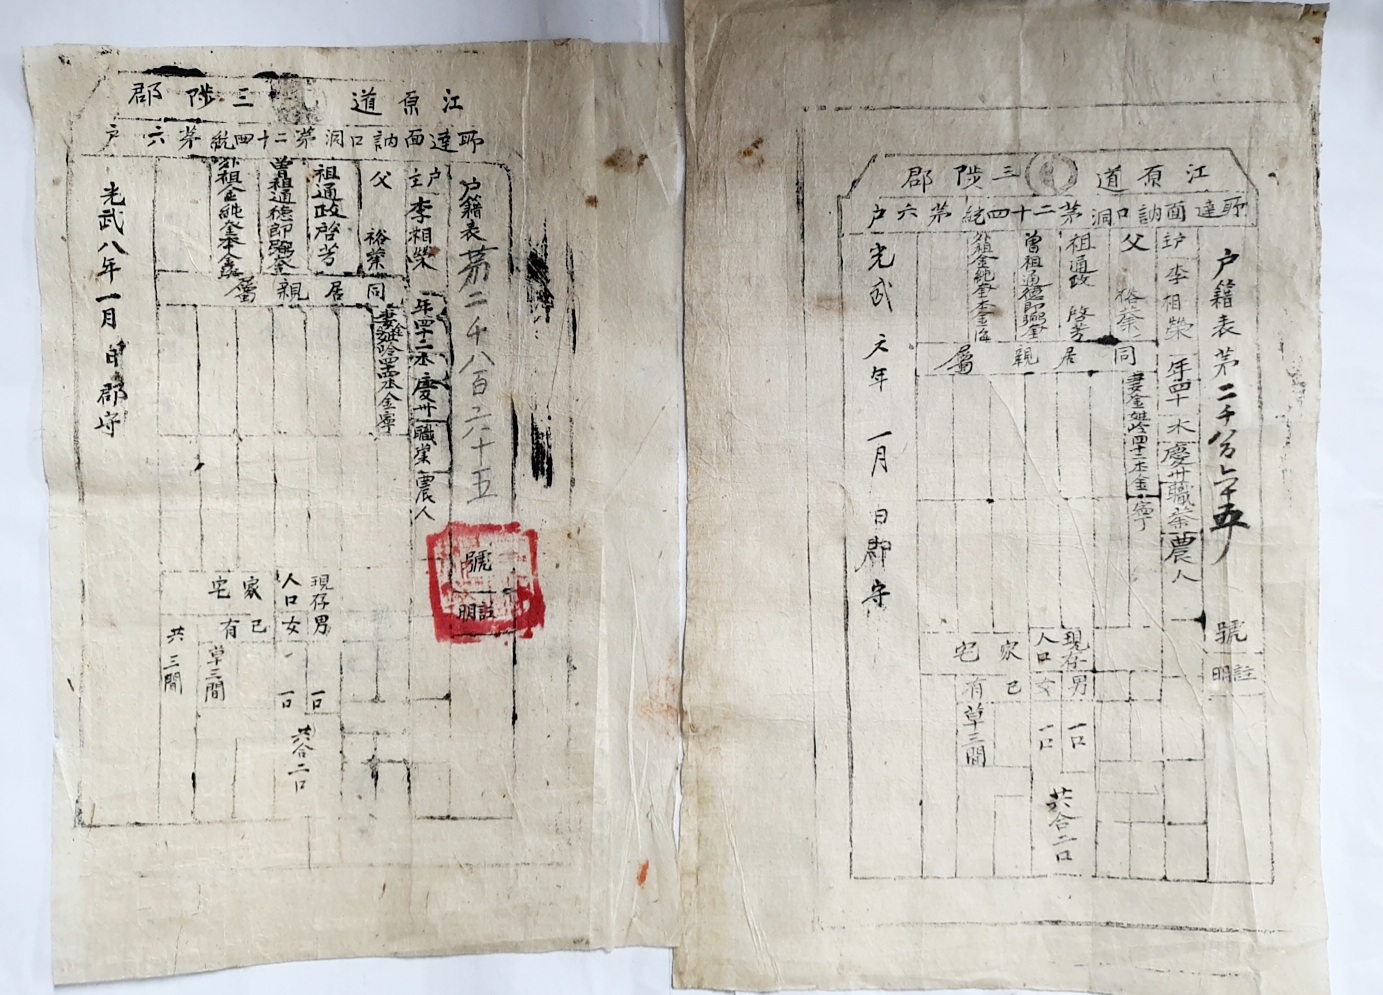 江原道 三陟郡
所達面訥口洞第二十四統第六户
户籍表第二千八百六十五
號
註明
户主 李相榮 年四十二本慶州職業農人
父 裕業
祖通政啓芳
曾祖通德郎
外祖金純奎本金海
同居親屬
妻金姓齡四十四本金寧
現存男 一口
人口女 一口
共合二口
家宅
己有 草三間
共三間
光武八年一月 日郡守
江原道 三陟郡
所達面訥口洞第二十四統第六户
户籍表第二千八百六十五
號
註明
户主 李相榮 年四十 本慶州職業農人
父 裕業
祖通政 啓芳
曾祖通德郎
外祖金純奎本金海
同居親屬
妻金姓齡四十二本金寧
現存男 一口
人口女 一口
共合二口
家宅
己有 草三間
光武 六年 一月 日郡守